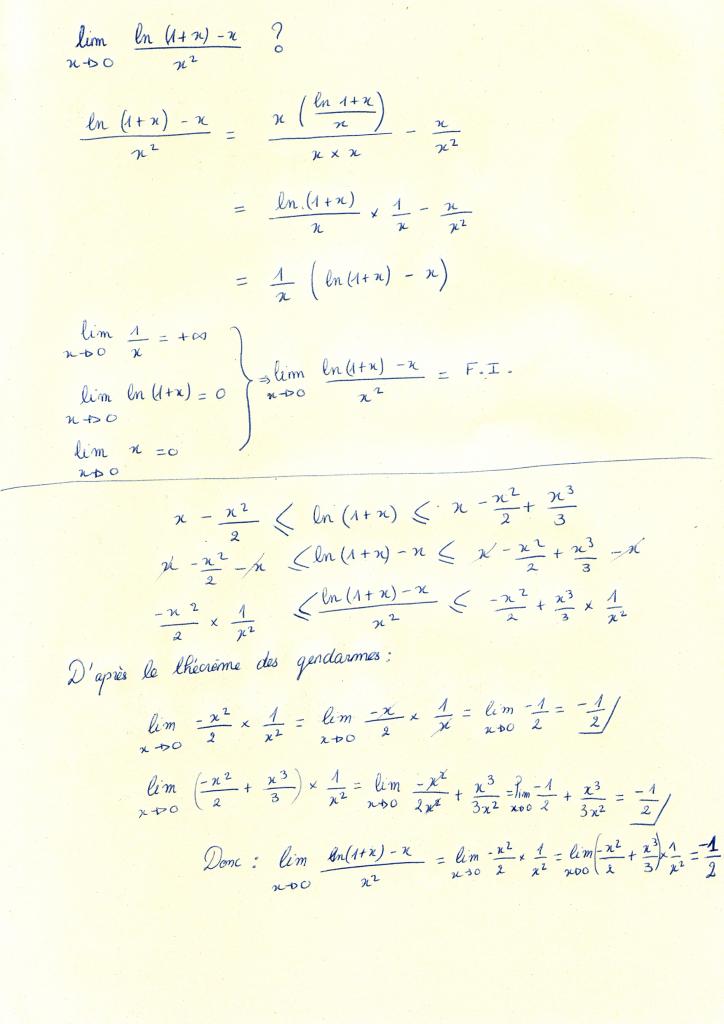 lim x→0 (ln (1+x) - x)/x² ?
(ln (1+x) - x)/x² = (x ((ln 1+x)/x))/(x × x) - x/x²
= (ln.(1+x))/x × 1/x - x/x²
= 1/x (ln(1+x) - x)
lim x→0 1/x = +∞
lim x→0 ln(1+x) = 0
lim x→0 x = 0
} ⇒ lim x→0 (ln(1+x) - x)/x² = F.I.
x - x²/2 ≤ ln (1+x) ≤ x - x²/2 + x³/3
x - x²/2 - x ≤ ln (1+x) - x ≤ x - x²/2 + x³/3 - x
-x²/2 × 1/x² ≤ (ln (1+x) - x)/x² ≤ -x²/2 + x³/3 × 1/x²
D'après le théorème des gendarmes :
lim x→0 -x²/2 × 1/x² = lim x→0 -x/2 × 1/x = lim x→0 -1/2 = -1/2
lim x→0 (-x²/2 + x³/3) × 1/x² = lim x→0 -x²/2x² + x³/3x² = lim x→0 -1/2 + x³/3x² = -1/2
Donc : lim x→0 (ln(1+x) - x)/x² = lim x→0 -x²/2 × 1/x² = lim x→0 (-x²/2 + x³/3) × 1/x² = -1/2